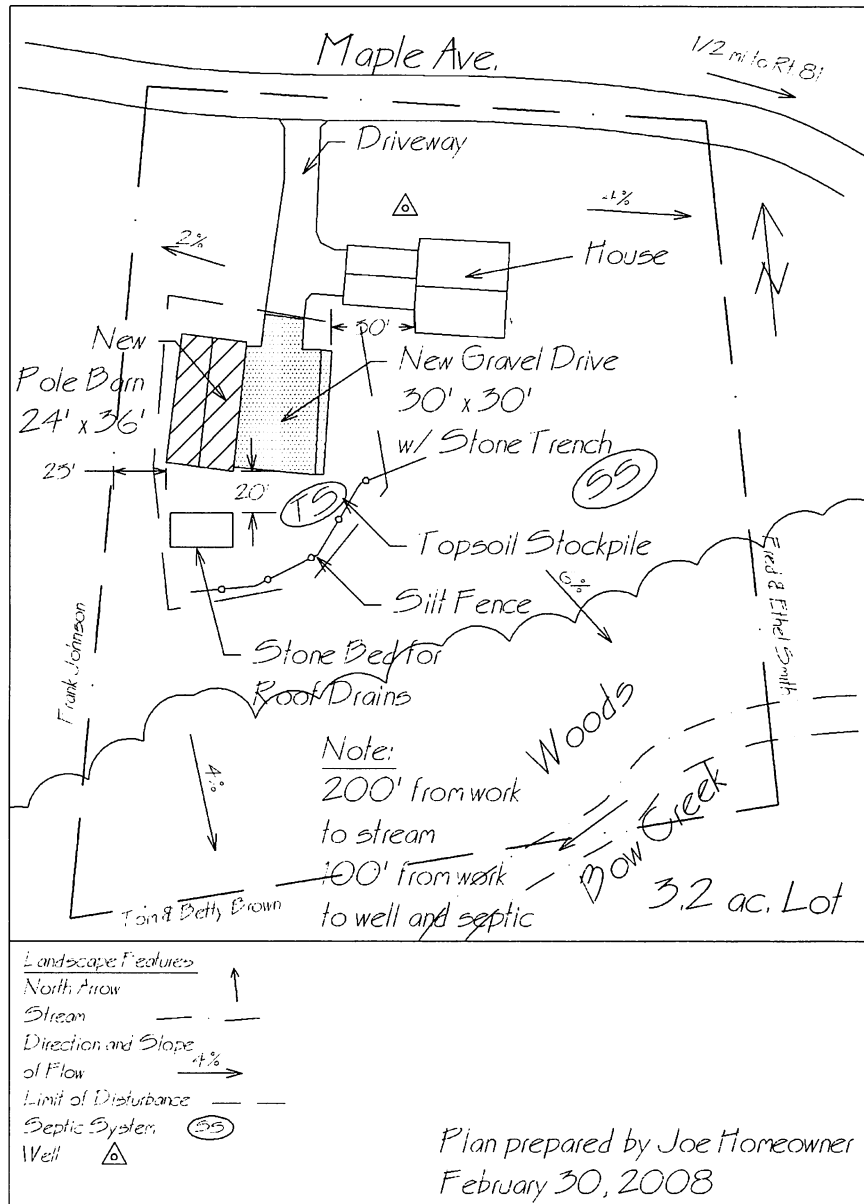 Maple Ave.
1/2 mi to Rt. 81
Driveway
4%
2%
House
30'
N
New
Pole Barn
24' x 36'
New Gravel Drive
30' x 30'
w/ Stone Trench
25'
20'
TS
SS
Topsoil Stockpile
6%
Silt Fence
Fred & Ethel Smith
Frank Johnson
Stone Bed for
Roof Drains
Woods
4%
Note:
200' from work
to stream
100' from work
to well and septic
Bow Creek
3.2 ac. Lot
Tom & Betty Brown
Landscape Features
North Arrow
Stream
Direction and Slope
of Flow 4%
Limit of Disturbance
Septic System SS
Well
Plan prepared by Joe Homeowner
February 30, 2008